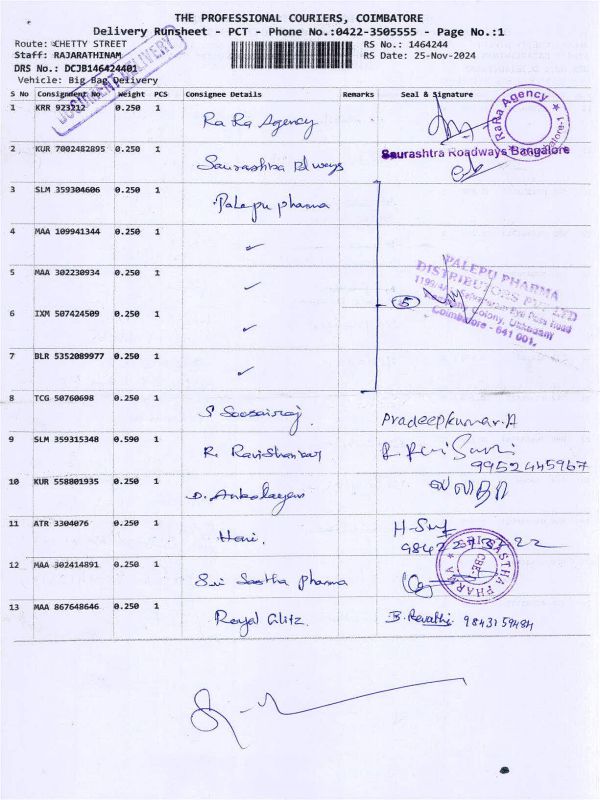 THE PROFESSIONAL COURIERS, COIMBATORE
Delivery Runsheet - PCT - Phone No.:0422-3505555 - Page No.:1
Route: CHETTY STREET RS No.: 1464244
Staff: RAJARATHINAM RS Date: 25-Nov-2024
DRS No.: DCJB146424401
Vehicle: Big Bag Delivery
DOCUMENT DELIVERY
S No Consignment No Weight PCS Consignee Details Remarks Seal & Signature
1 KRR 923212 0.250 1 Ra Ra Agency
RaRa Agency
2 KUR 7002482895 0.250 1 Saurashtra Rdways Saurashtra Roadways Bangalore
3 SLM 359304606 0.250 1 Palepu pharma
4 MAA 109941344 0.250 1 ✓
5 MAA 302230934 0.250 1 ✓
PALEPU PHARMA
DISTRIBUTORS PVT LTD
Colony,
Coimbatore - 641 001.
6 IXM 507424509 0.250 1 ✓ 5
7 BLR 5352089977 0.250 1 ✓
8 TCG 50760698 0.250 1 S Soosairaj Pradeepkumar.A
9 SLM 359315348 0.590 1 R. Ravishankar
9952445967
10 KUR 558801935 0.250 1
11 ATR 3304076 0.250 1 Hari.
12 MAA 302414891 0.250 1 Sri Sastha pharma
SRI SASTHA PHARMA
CBE.
13 MAA 867648646 0.250 1 Royal Glitz. B. Revathi. 9843159484